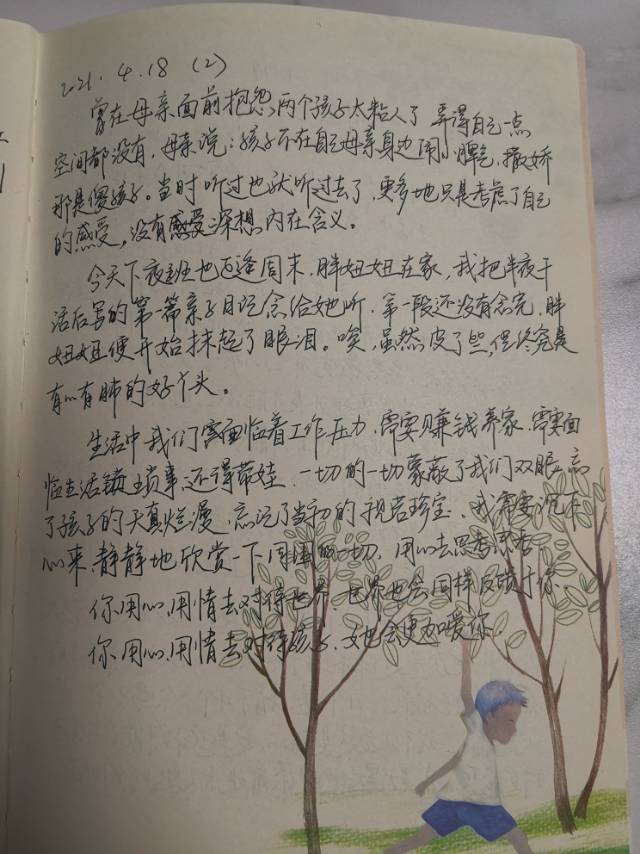 2021.4.18 (2)
曾在母亲面前抱怨,两个孩子太粘人了 弄得自己一点
空间都没有,母亲说:孩子不在自己母亲身边闹小脾气,撒娇
那是傻孩子。当时听过也就听过去了,更多地只是考虑了自己
的感受,没有感受深想内在含义。
今天下夜班也正逢周末,胖妞妞在家,我把半夜干
活后写的第一篇亲子日记念给她听,第一段还没有念完,胖
妞妞便开始抹起了眼泪。唉,虽然皮了些,但终究是
有心有肺的好个头。
生活中我们需面临着工作压力,需要赚钱养家,需要面
临生活镇琐事,还得带娃,一切的一切蒙蔽了我们双眼,忘
了孩子的天真烂漫,忘记了当初的视若珍宝,我需要沉下
心来,静静地欣赏一下周围的一切,用心去思考思考
你用心,用情去对待世界,世界也会同样反馈于你
你用心,用情去对待孩子,她也会更加爱你.